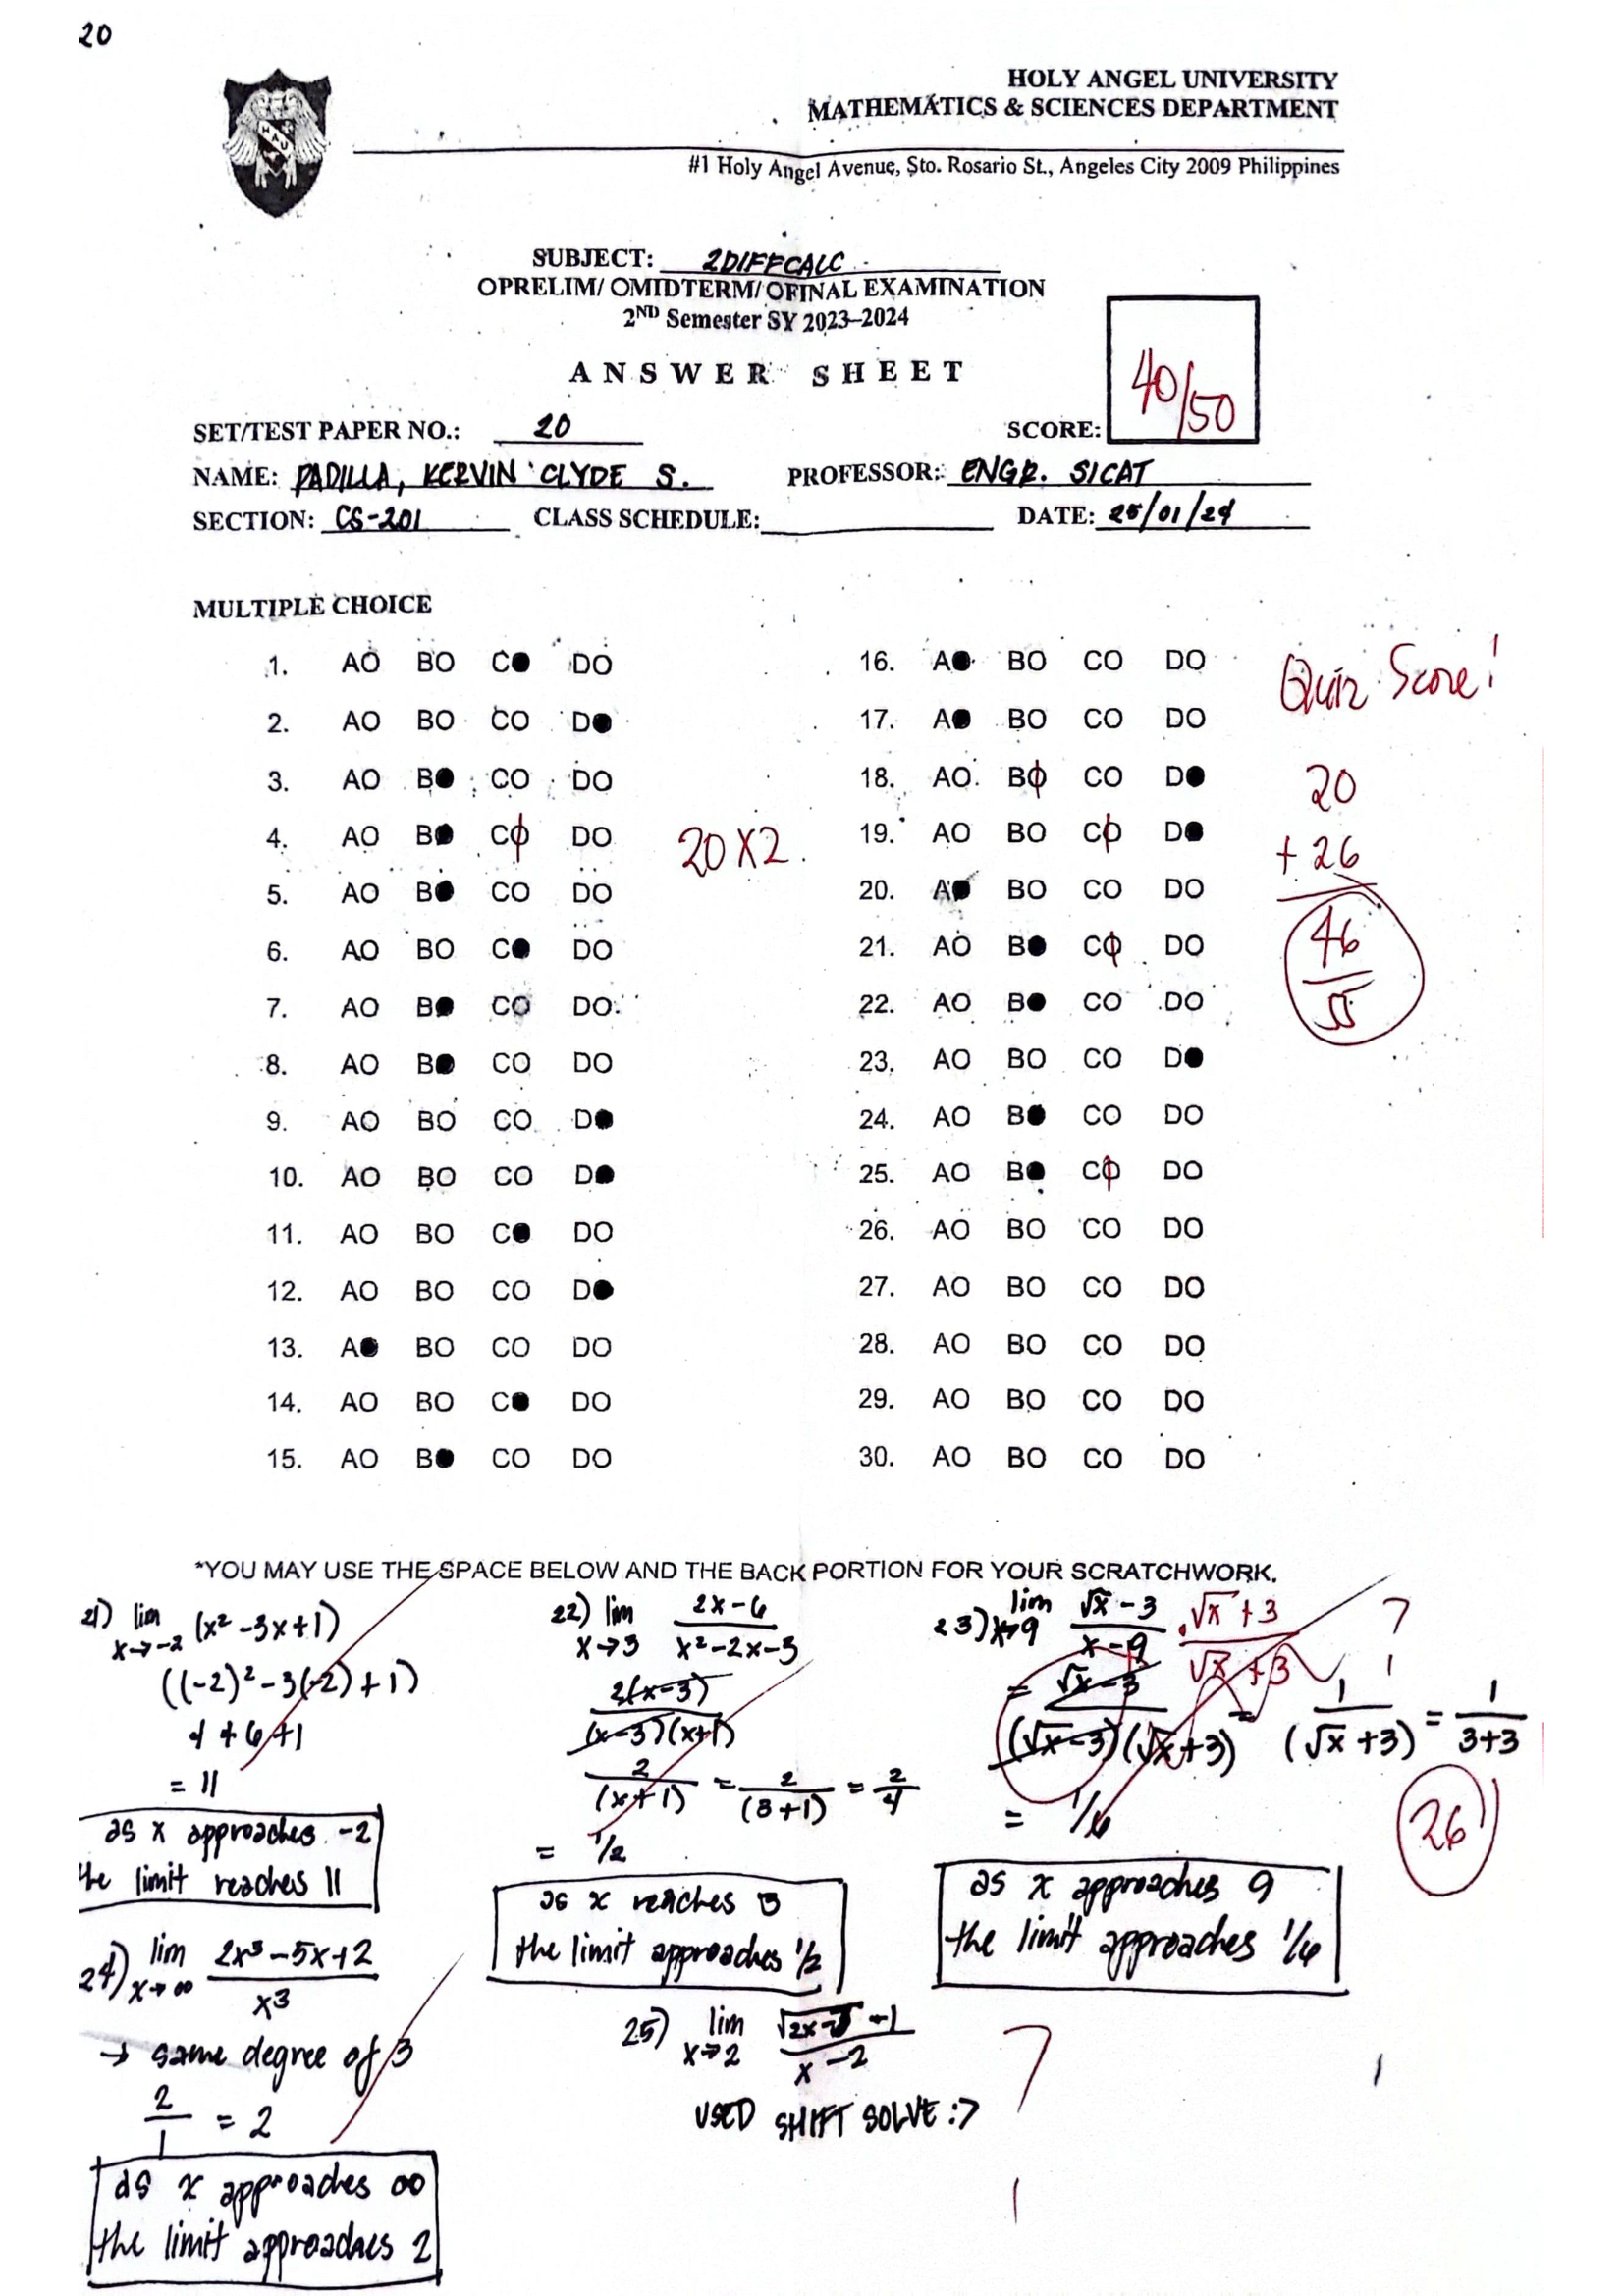 20
HOLY ANGEL UNIVERSITY
MATHEMATICS & SCIENCES DEPARTMENT
#1 Holy Angel Avenue, Sto. Rosario St., Angeles City 2009 Philippines
HAU
SUBJECT: 2DIFFCALC
OPRELIM/ OMIDTERM/ OFINAL EXAMINATION
2ND Semester SY 2023-2024
ANSWER SHEET
40/50
SET/TEST PAPER NO.: 20 SCORE:
NAME: PADILLA, KERVIN CLYDE S. PROFESSOR: ENGR. SICAT
SECTION: CS-201 CLASS SCHEDULE: DATE: 25/01/24
MULTIPLE CHOICE
1. AO BO C● DO
2. AO BO CO D●
3. AO B● CO DO
4. AO B● CO DO
5. AO B● CO DO
6. AO BO C● DO
7. AO B● CO DO
8. AO B● CO DO
9. AO BO CO D●
10. AO BO CO D●
11. AO BO C● DO
12. AO BO CO D●
13. A● BO CO DO
14. AO BO C● DO
15. AO B● CO DO
20 X 2
16. A● BO CO DO
17. A● BO CO DO
18. AO BO CO D●
19. AO BO CO D●
20. A● BO CO DO
21. AO B● CO DO
22. AO B● CO DO
23. AO BO CO D●
24. AO B● CO DO
25. AO B● CO DO
26. AO BO CO DO
27. AO BO CO DO
28. AO BO CO DO
29. AO BO CO DO
30. AO BO CO DO
Quiz Score!
20
+ 26
46
55
*YOU MAY USE THE SPACE BELOW AND THE BACK PORTION FOR YOUR SCRATCHWORK.
21) lim x→-2 (x² -3x+1)
((-2)² -3(-2) +1)
4 + 6 +1
= 11
as x approaches -2
the limit reaches 11
22) lim x→3 2x-6 / x²-2x-3
2(x-3) / (x-3)(x+1)
2 / (x+1) = 2 / (3+1) = 2/4
= 1/2
as x reaches 3
the limit approaches 1/2
23) lim x→9 √x -3 / x-9 . √x +3 / √x +3
= √x-3 / (√x-3)(√x+3) = 1 / (√x +3) = 1 / 3+3
= 1/6
as x approaches 9
the limit approaches 1/6
26
24) lim x→∞ 2x³-5x+2 / x³
→ same degree of 3
2/1 = 2
as x approaches ∞
the limit approaches 2
25) lim x→2
x-2
USED SHIFT SOLVE :>